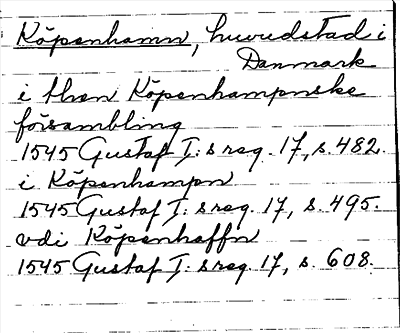 Köpenhamn, huvudstad i
Danmark
i then Köpenhampnske
försambling
1545 Gustaf I:s reg. 17, s. 482.
i Köpenhampn
1545 Gustaf I:s reg. 17, s. 495.
vdi Köpenhaffn
1545 Gustaf I:s reg. 17, s. 608.